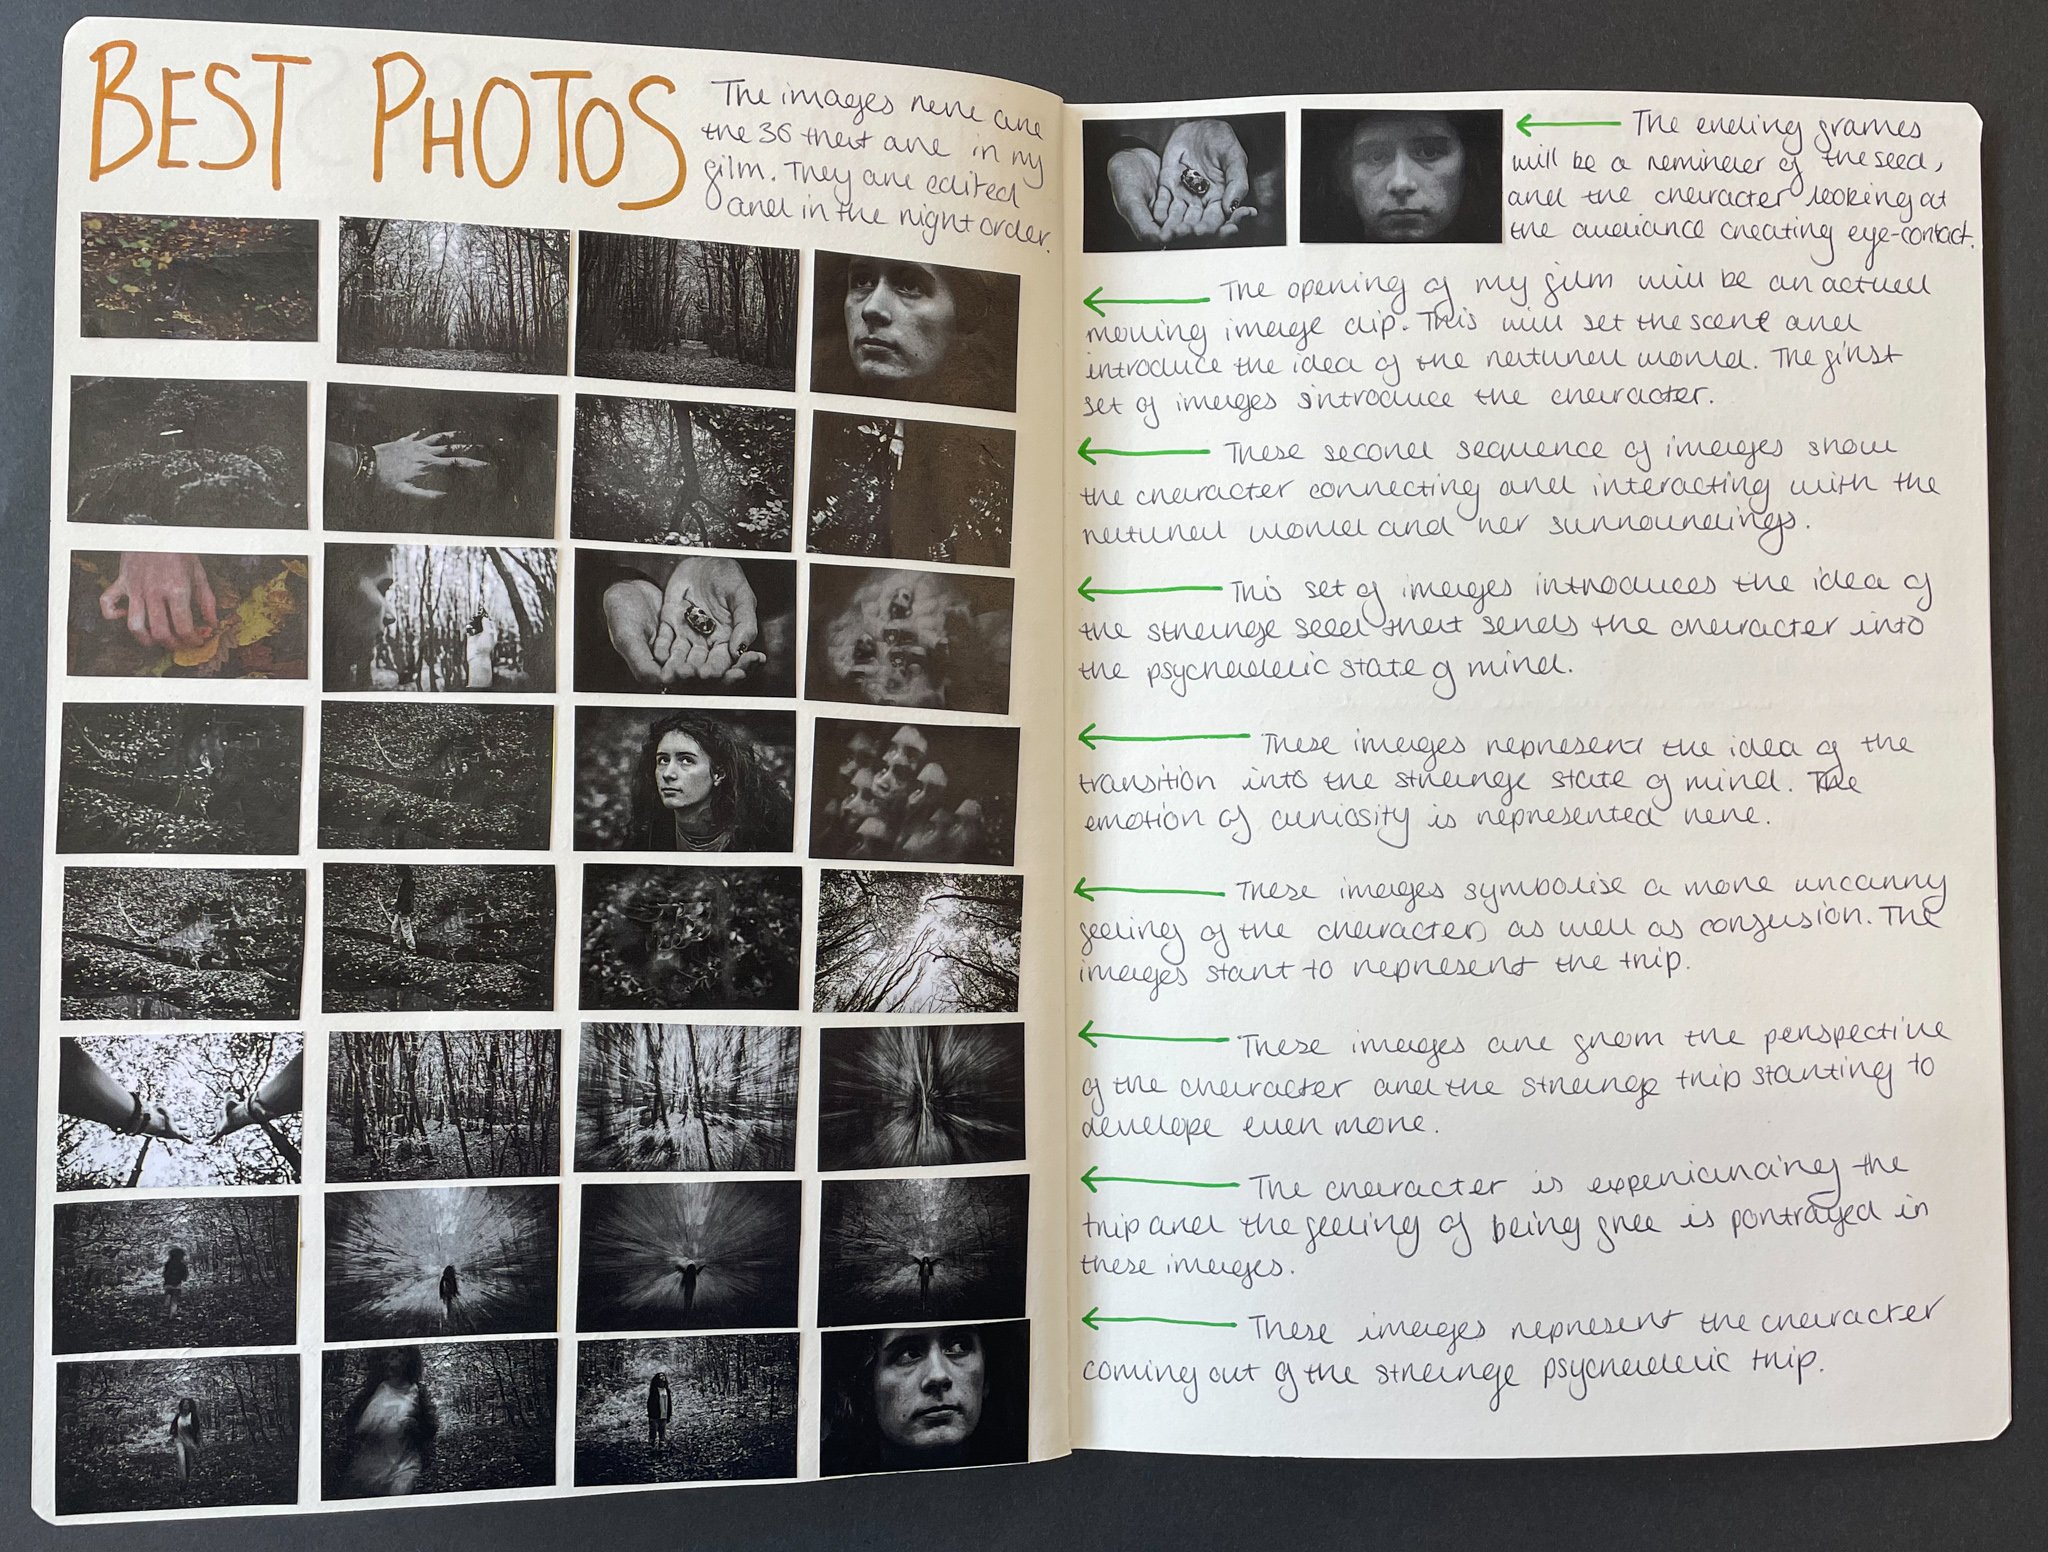 BEST PHOTOS
The images here are
the 36 that are in my
film. They are edited
and in the right order.
The ending frames
will be a reminder of the seed,
and the character looking at
the audiance creating eye-contact.
The opening of my film will be an actual
moving image clip. This will set the scent and
introduce the idea of the natural world. The first
set of images sintroduce the character.
These second sequence of images show
the character connecting and interacting with the
natural world and her surroundings.
This set of images introduces the idea of
the strange seed that sends the character into
the psychadelic state of mind.
These images represent the idea of the
transition into the strange state of mind. The
emotion of curiosity is represented here.
These images symbolise a more uncanny
feeling of the character, as well as confusion. The
images start to represent the trip.
These images are from the perspective
of the character and the strange trip starting to
develope even more.
The character is experiancing the
trip and the feeling of being free is portrayed in
these images.
These images represent the character
coming out of the strange psychadelic trip.